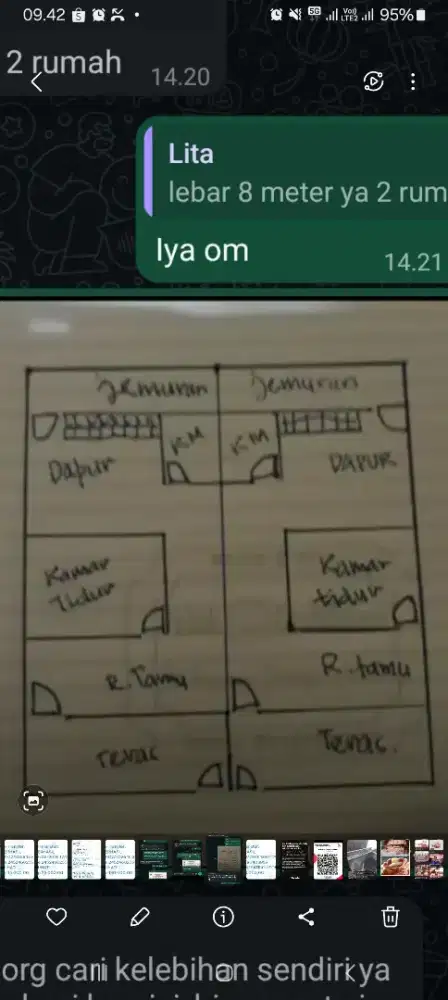 09.42
5G
Vo)
LTE2
95%
2 rumah
14.20
Lita
lebar 8 meter ya 2 rum
Iya om
14.21
Jemuran Jemuran
KM KM
Dapur DAPUR
Kamar
Tidur
Kamar
tidur
R. Tamu R. tamu
Teras Teras.
org cari kelebihan sendiri ya